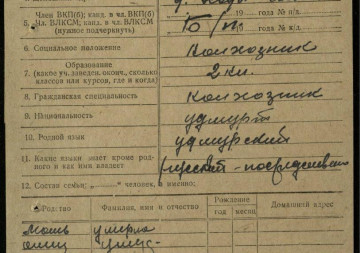 Член ВКП(б), канд. в чл. ВКП(б)
5. Чл. ВЛКСМ, канд. в чл. ВЛКСМ
(нужное подчеркнуть)
Б/П
19 года № п/б.
19 года № к/б.
6. Социальное положение Колхозник
7. Образование
(какое уч. заведен. оконч., сколько
классов или курсов, где и когда)
2 кл.
8. Гражданская специальность колхозник
9. Национальность удмурт
10. Родной язык удмурский
11. Какие языки знает кроме род-
ного и как ими владеет
русский - посредствен
12. Состав семьи: „ “ человек, а именно:
Родство Фамилия, имя и отчество Рождение Домашний адрес
год месяц
Мать умерла
отец